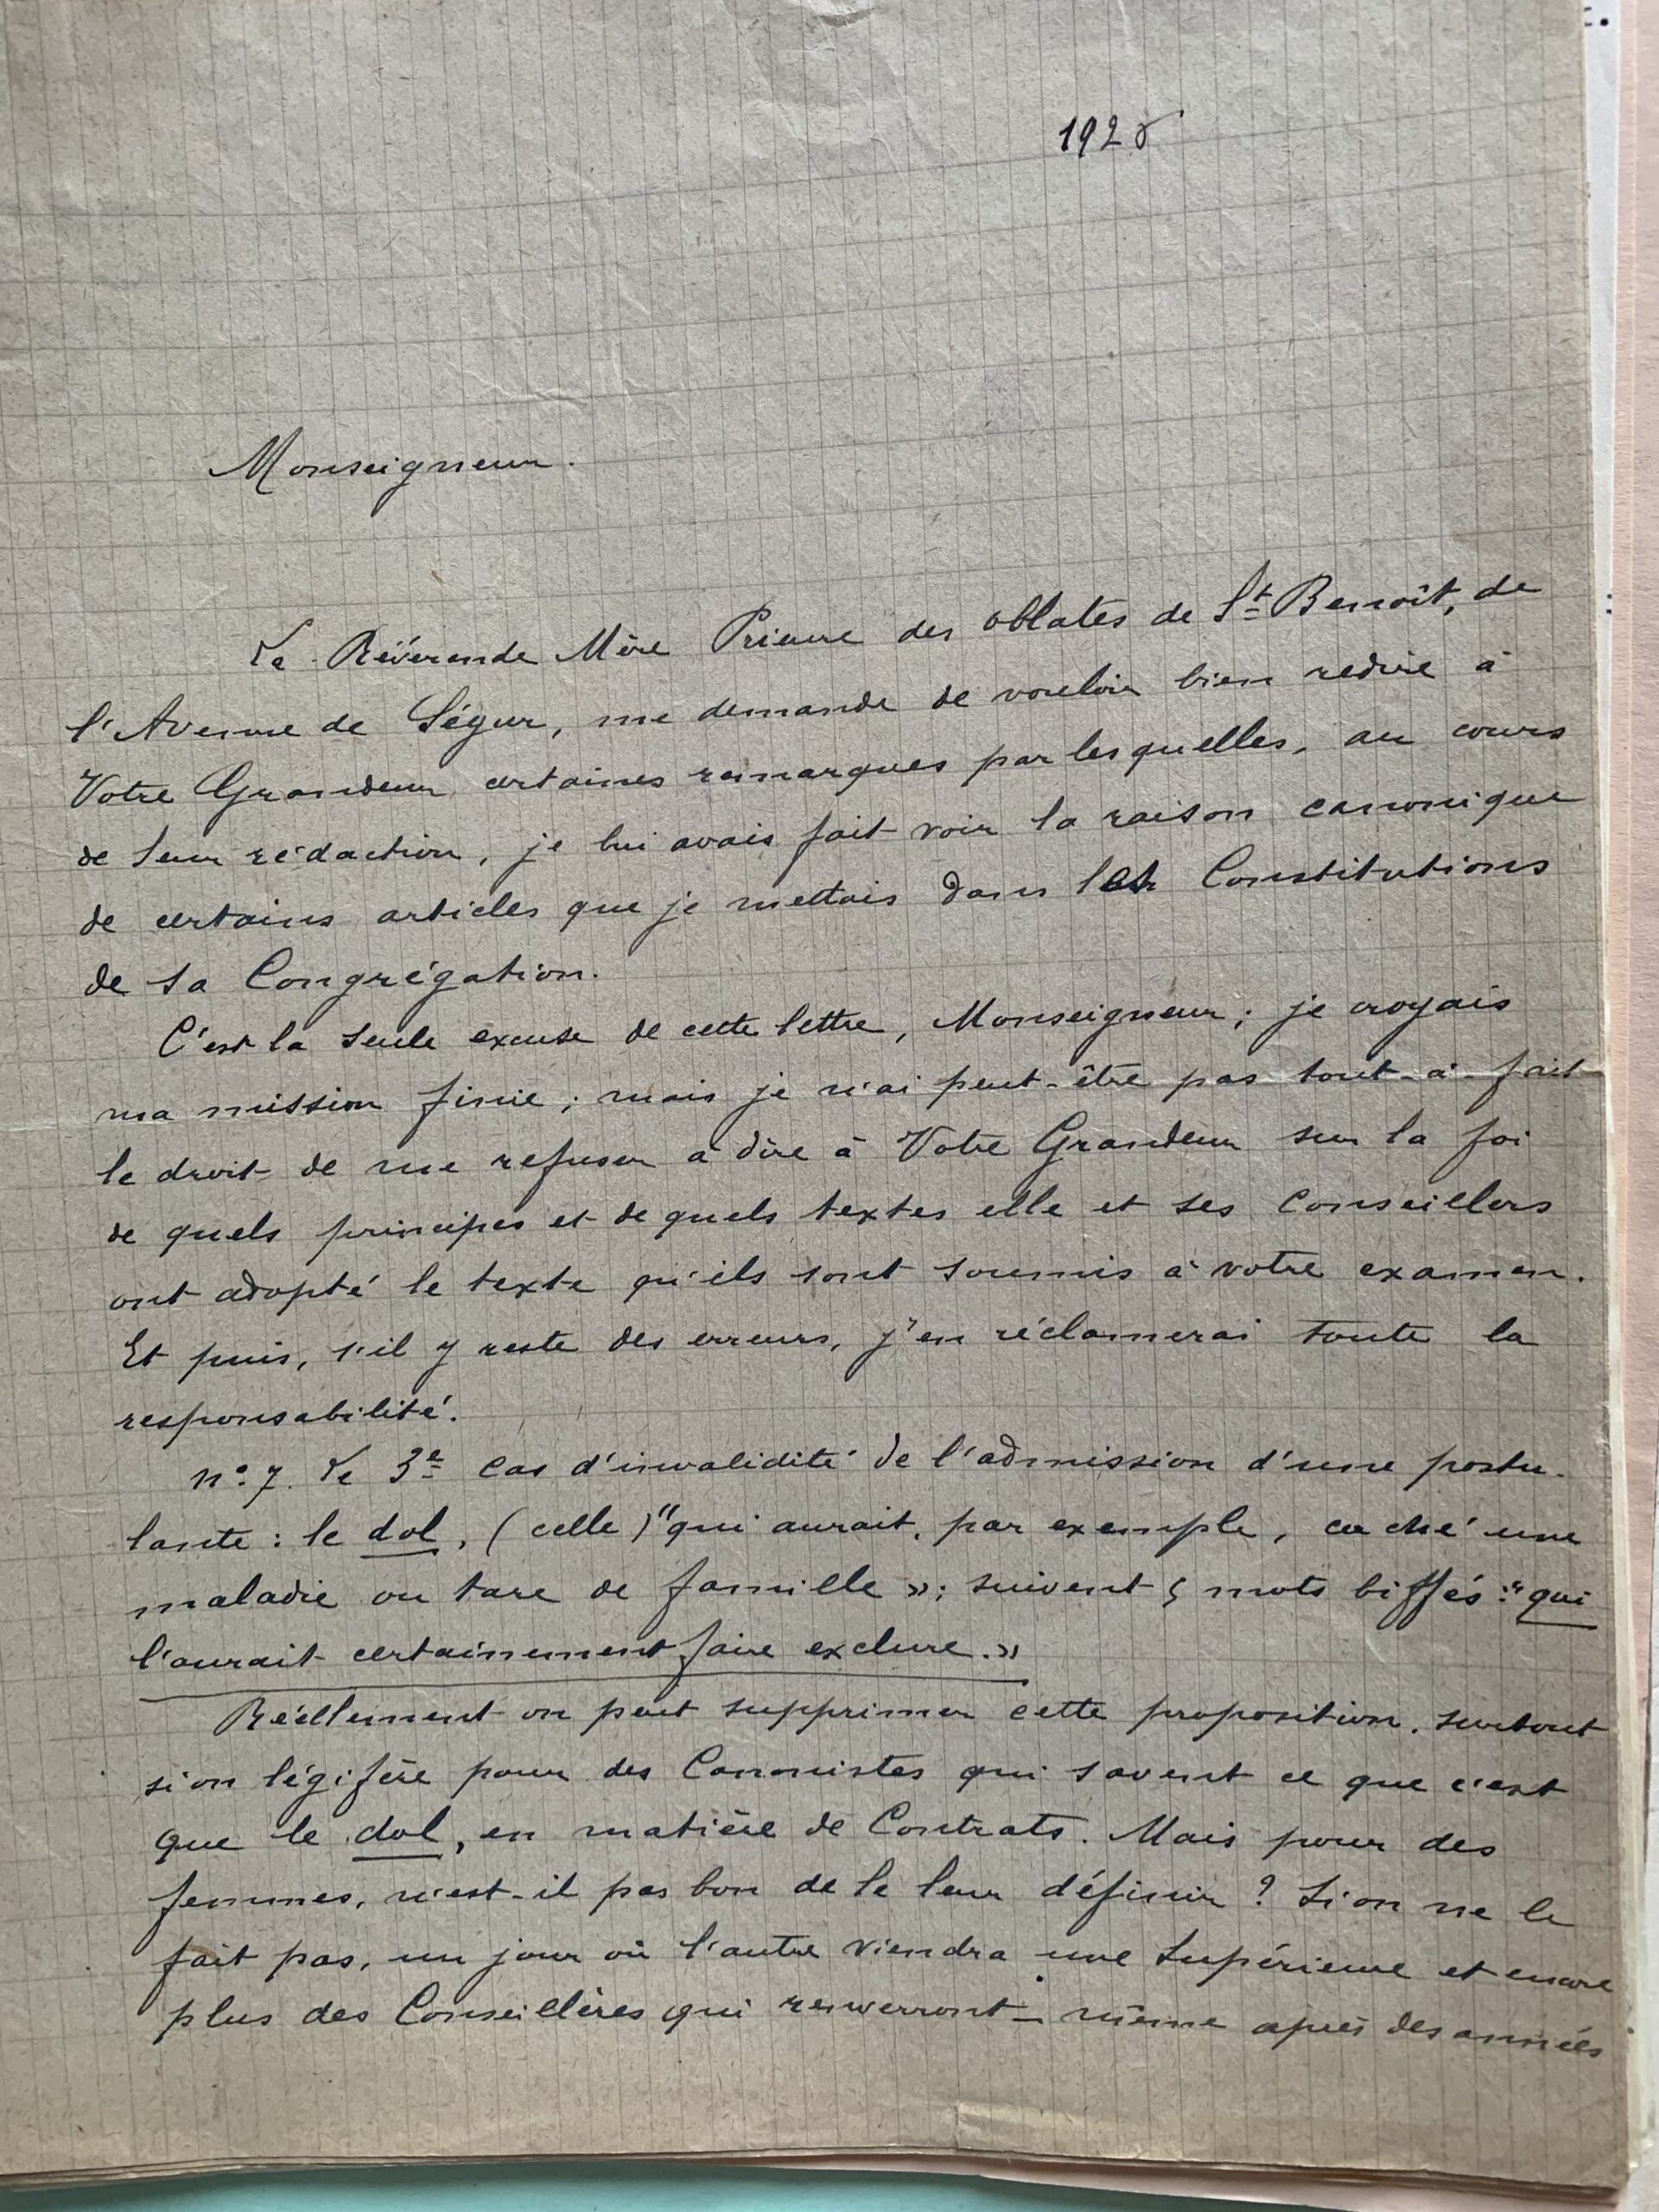 1928
Monseigneur.
La Révérende Mère Prieure des oblates de St Benoît, de
l'Avenue de Ségur, me demande de vouloir bien redire à
Votre Grandeur certaines remarques par lesquelles, au cours
de leur rédaction, je lui avais fait voir la raison canonique
de certains articles que je mettais dans les Constitutions
de sa Congrégation.
C'est la seule excuse de cette lettre, Monseigneur ; je croyais
ma mission finie ; mais je n'ai peut-être pas tout-à-fait
le droit de me refuser à dire à Votre Grandeur sur la foi
de quels principes et de quels textes elle et ses Conseillers
ont adopté le texte qu'ils sont soumis à votre examen.
Et puis, s'il y reste des erreurs, j'en réclamerai toute la
responsabilité.
n° 7. Le 3e cas d'invalidité de l'admission d'une postu-
lante : le dol, (celle) "qui aurait, par exemple, caché une
maladie ou tare de famille » ; suivent 5 mots biffés : "qui
l'aurait certainement faire exclure. »
Réellement on peut supprimer cette proposition, surtout
si on légifère pour des Canonistes qui savent ce que c'est
que le dol, en matière de Contrats. Mais pour des
femmes, n'est-il pas bon de le leur définir ? Si on ne le
fait pas, un jour où l'autre viendra une Supérieure et encore
plus des Conseillères qui renverront - même après des années